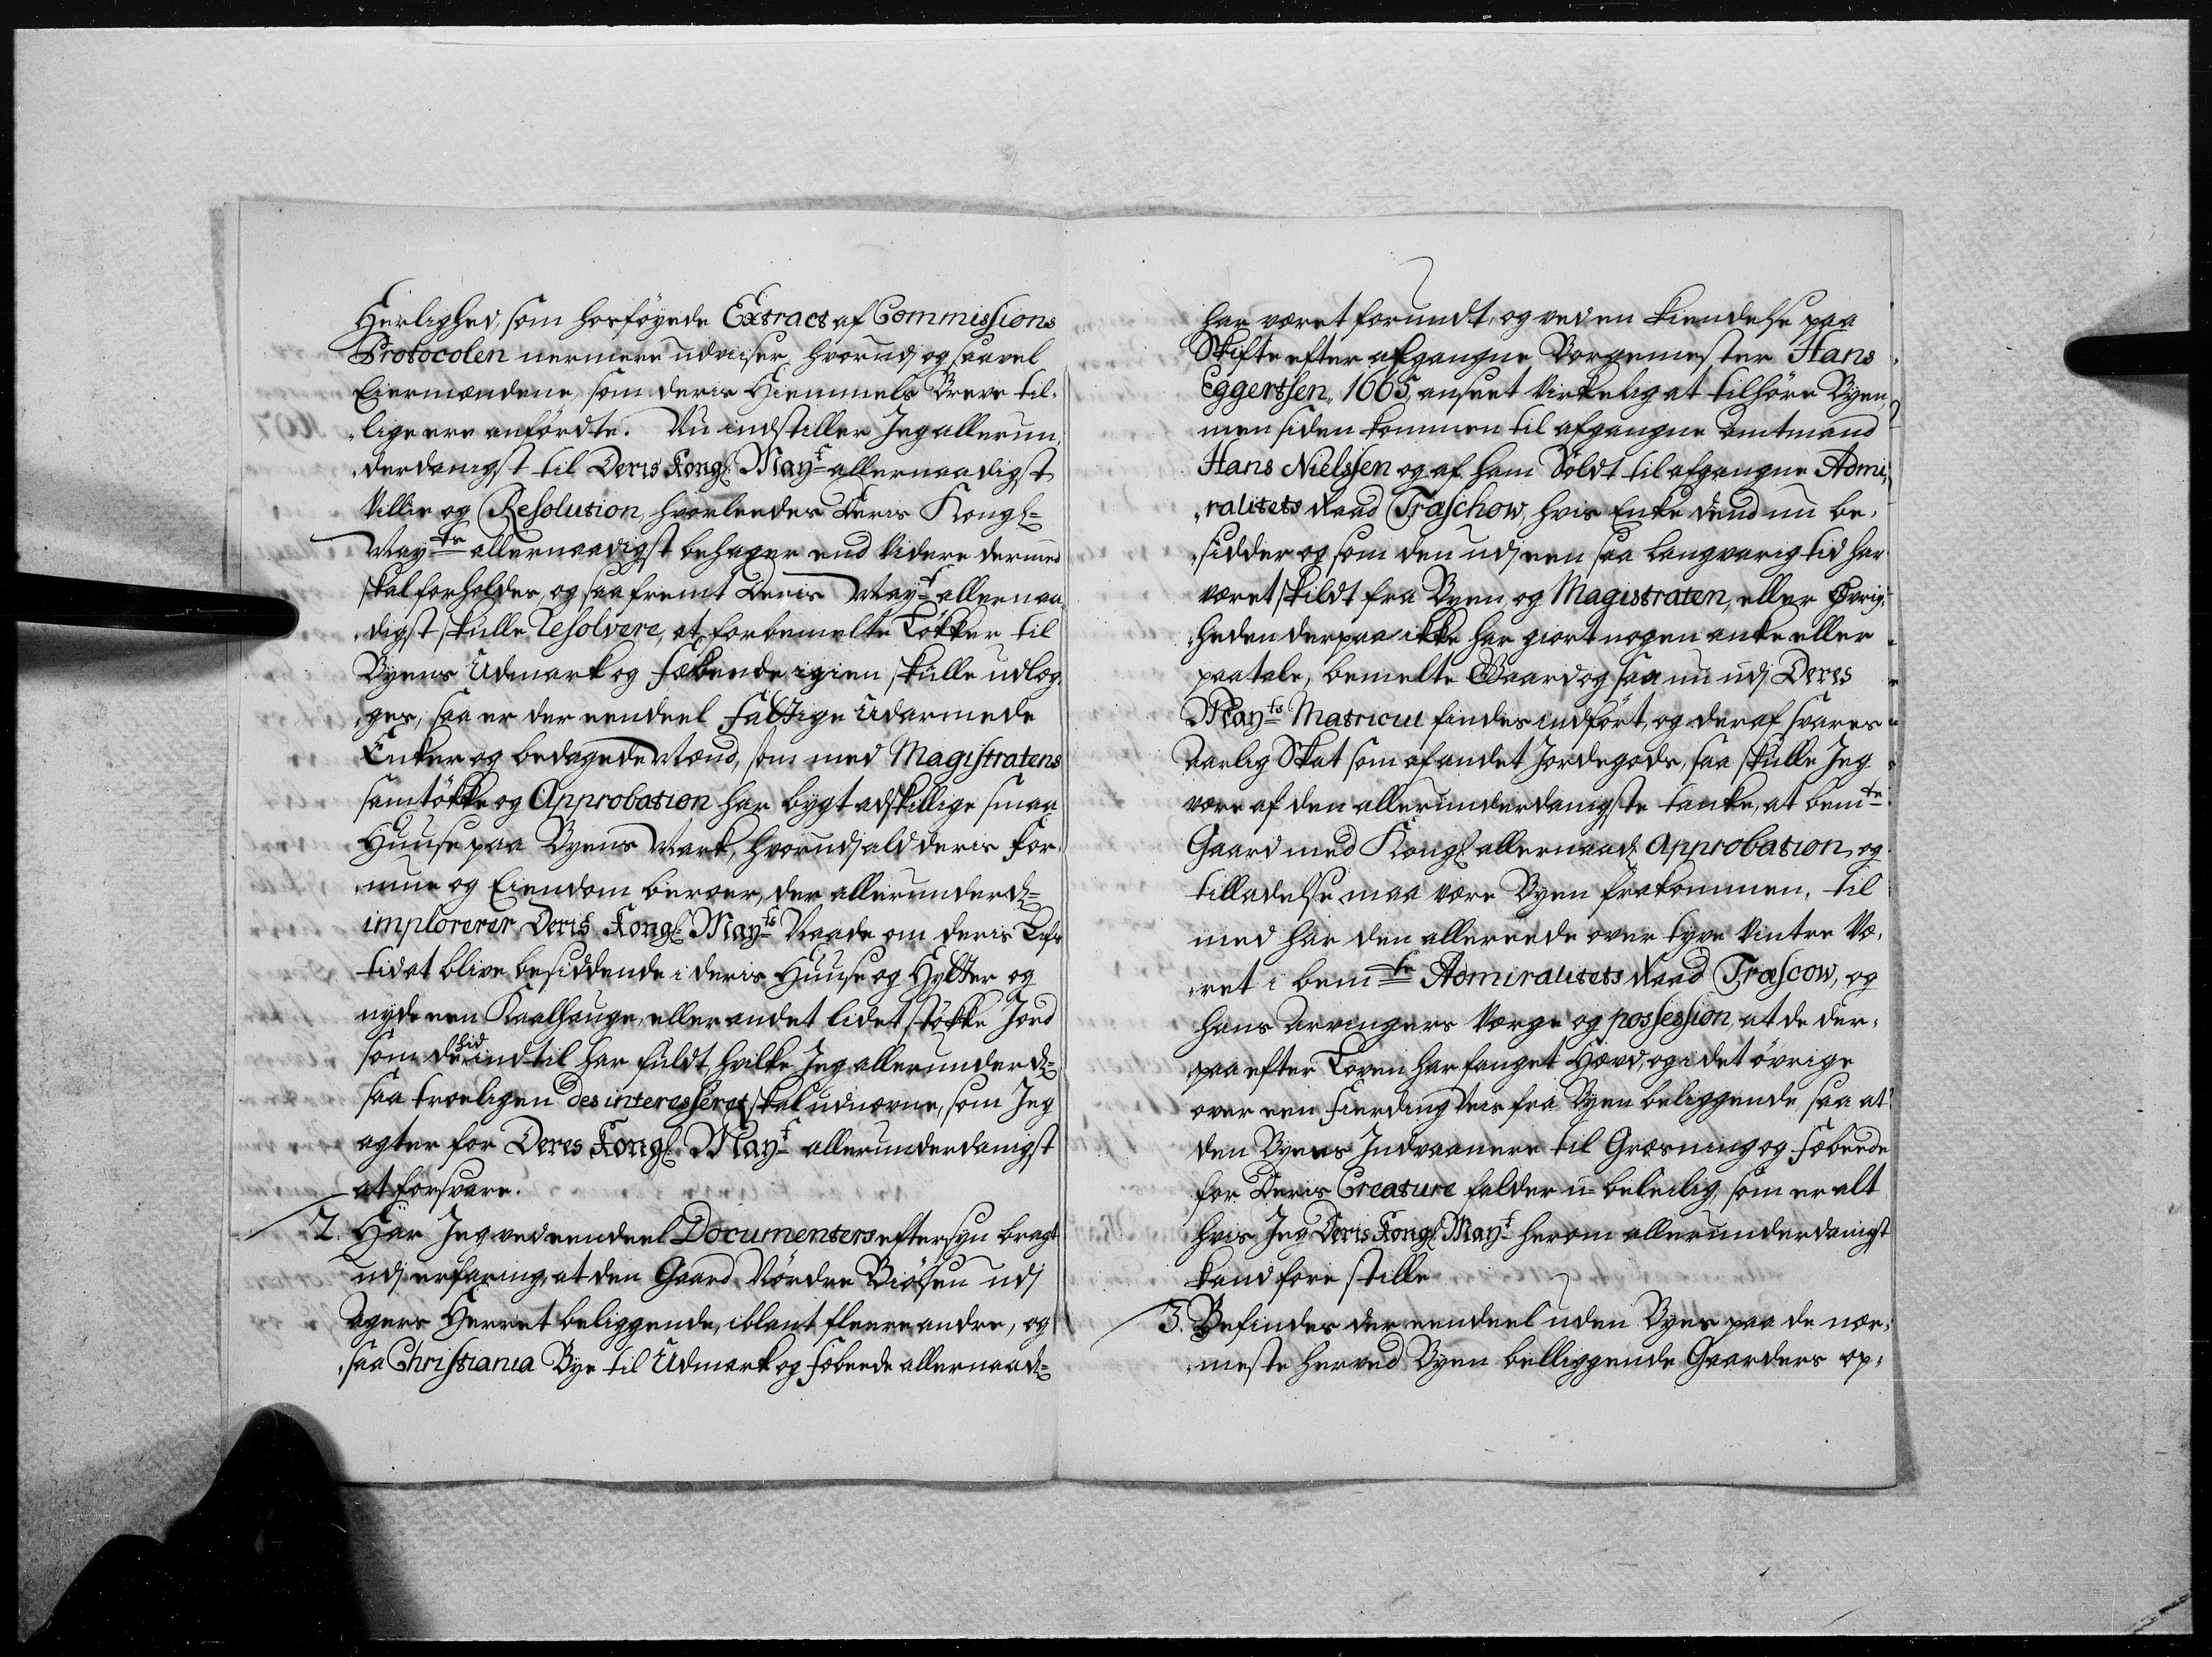 Herlighed, som hosföyede Extract af Commissions
Protocolen nermere udviser, hvorudj og saavel
Eiermændene, som deris Hiemmels Breve til-
lige ere anfördte. Nu indstiller Jeg allerun,
derdanigst til Deris Kongl: Mayt allernaadigst
Villie og Resolution, hvorleedes Deris Kongl=
Mayts allernaadigst behager end Videre dermed
skal forholdes, og saafremt Deris Mayt allernaa,
digst skulle Resolvere, at forbemelte Løkker til
Byens Udmark og Fæbeede igien skulle udlæg,
ges, saa er der eendeel Fattige Udarmede
Enker og bedagede Mænd, som med Magistratens
samtökke og Approbation har bygt adskillige smaa
Huuse paa Byens Mark, hvorudj ald deris For,
mue og Eiendom beroer, der allerunderd:
implorerer Deris Kongl: Mayts Naade om deris Lifs
tid at blive besiddende i deris Huuse og Hytter og
nyde een Kaalhauge, eller andet lidet støkke Jord
som der hid indtil har fuldt, hvilke Jeg allerunderd:
saa troeligen des interesseret skal udnævne, som Jeg
agter for Deres Kongl: Mayt allerunderdanigst
at forsvare.
2. Har Jeg ved eendeel Documenters eftersyn bragt
udj erfaring, at den Gaard Nördre Biölsen udj
Agers Herret beliggende, iblant fleere andre, og
saa Christiania Bye til Udmark og Fæbeede allernaad:
har været forundt, og ved en kiendelse paa
Skifte efter afgangne Borgemester Hans
Eggertsen, 1665, anseet Virkelig at tilhöre Byen,
men siden kommen til afgangne Amtmand
Hans Nielssen og af ham Soldt til afgangne Admi,
ralitets Raad Træschow, hvis Enke dend nu be,
sidder og som den udj een saa langvarig tid har
været skildt fra Byen, og Magistraten, eller Øvrig,
heden derpaa ikke har giort nogen anke eller
paatale, bemelte Gaard og saa nu udj Deres
Mayts Matricul findes indfört, og deraf svares
Aarlig Skat som af andet Jordegods, saa skulle Jeg
være af den allerunderdanigste tanke, at bemte
Gaard med Kongl: allernaad: Approbation, og
tilladelse maa være Byen frakommen, til
med har den allereede over tyve Vintre Væ,
ret i bemte Admiralitets Raad Træscow, og
hans Arvingers Værge og possession, at de der,
paa efter Loven har fanget Hævd, og i det övrige
over een Fierding Veis fra Byen beliggende saa at
den Byens Indvaanere til Græsning og Fæbeede
for Deris Creature falder u-beleilig, som er alt
hvis Jeg Deris Kongl: Mayt herom allerunderdanigst
kand fore stille
3. Befindes der eendeel uden Byes paa de nær,
meste herved Byen belliggende Gaarders op,